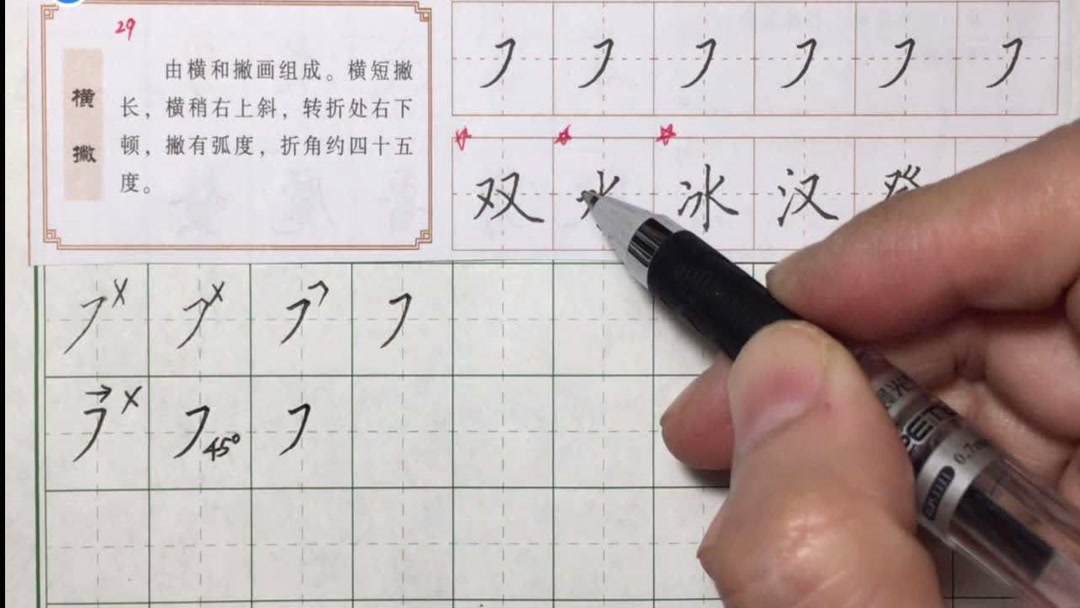 29
横撇
由横和撇画组成。横短撇
长，横稍右上斜，转折处右下
顿，撇有弧度，折角约四十五
度。
㇇ ㇇ ㇇ ㇇ ㇇ ㇇
双 水 冰 汉
㇇× ㇇× ㇇ ㇇
㇇× ㇇45° ㇇